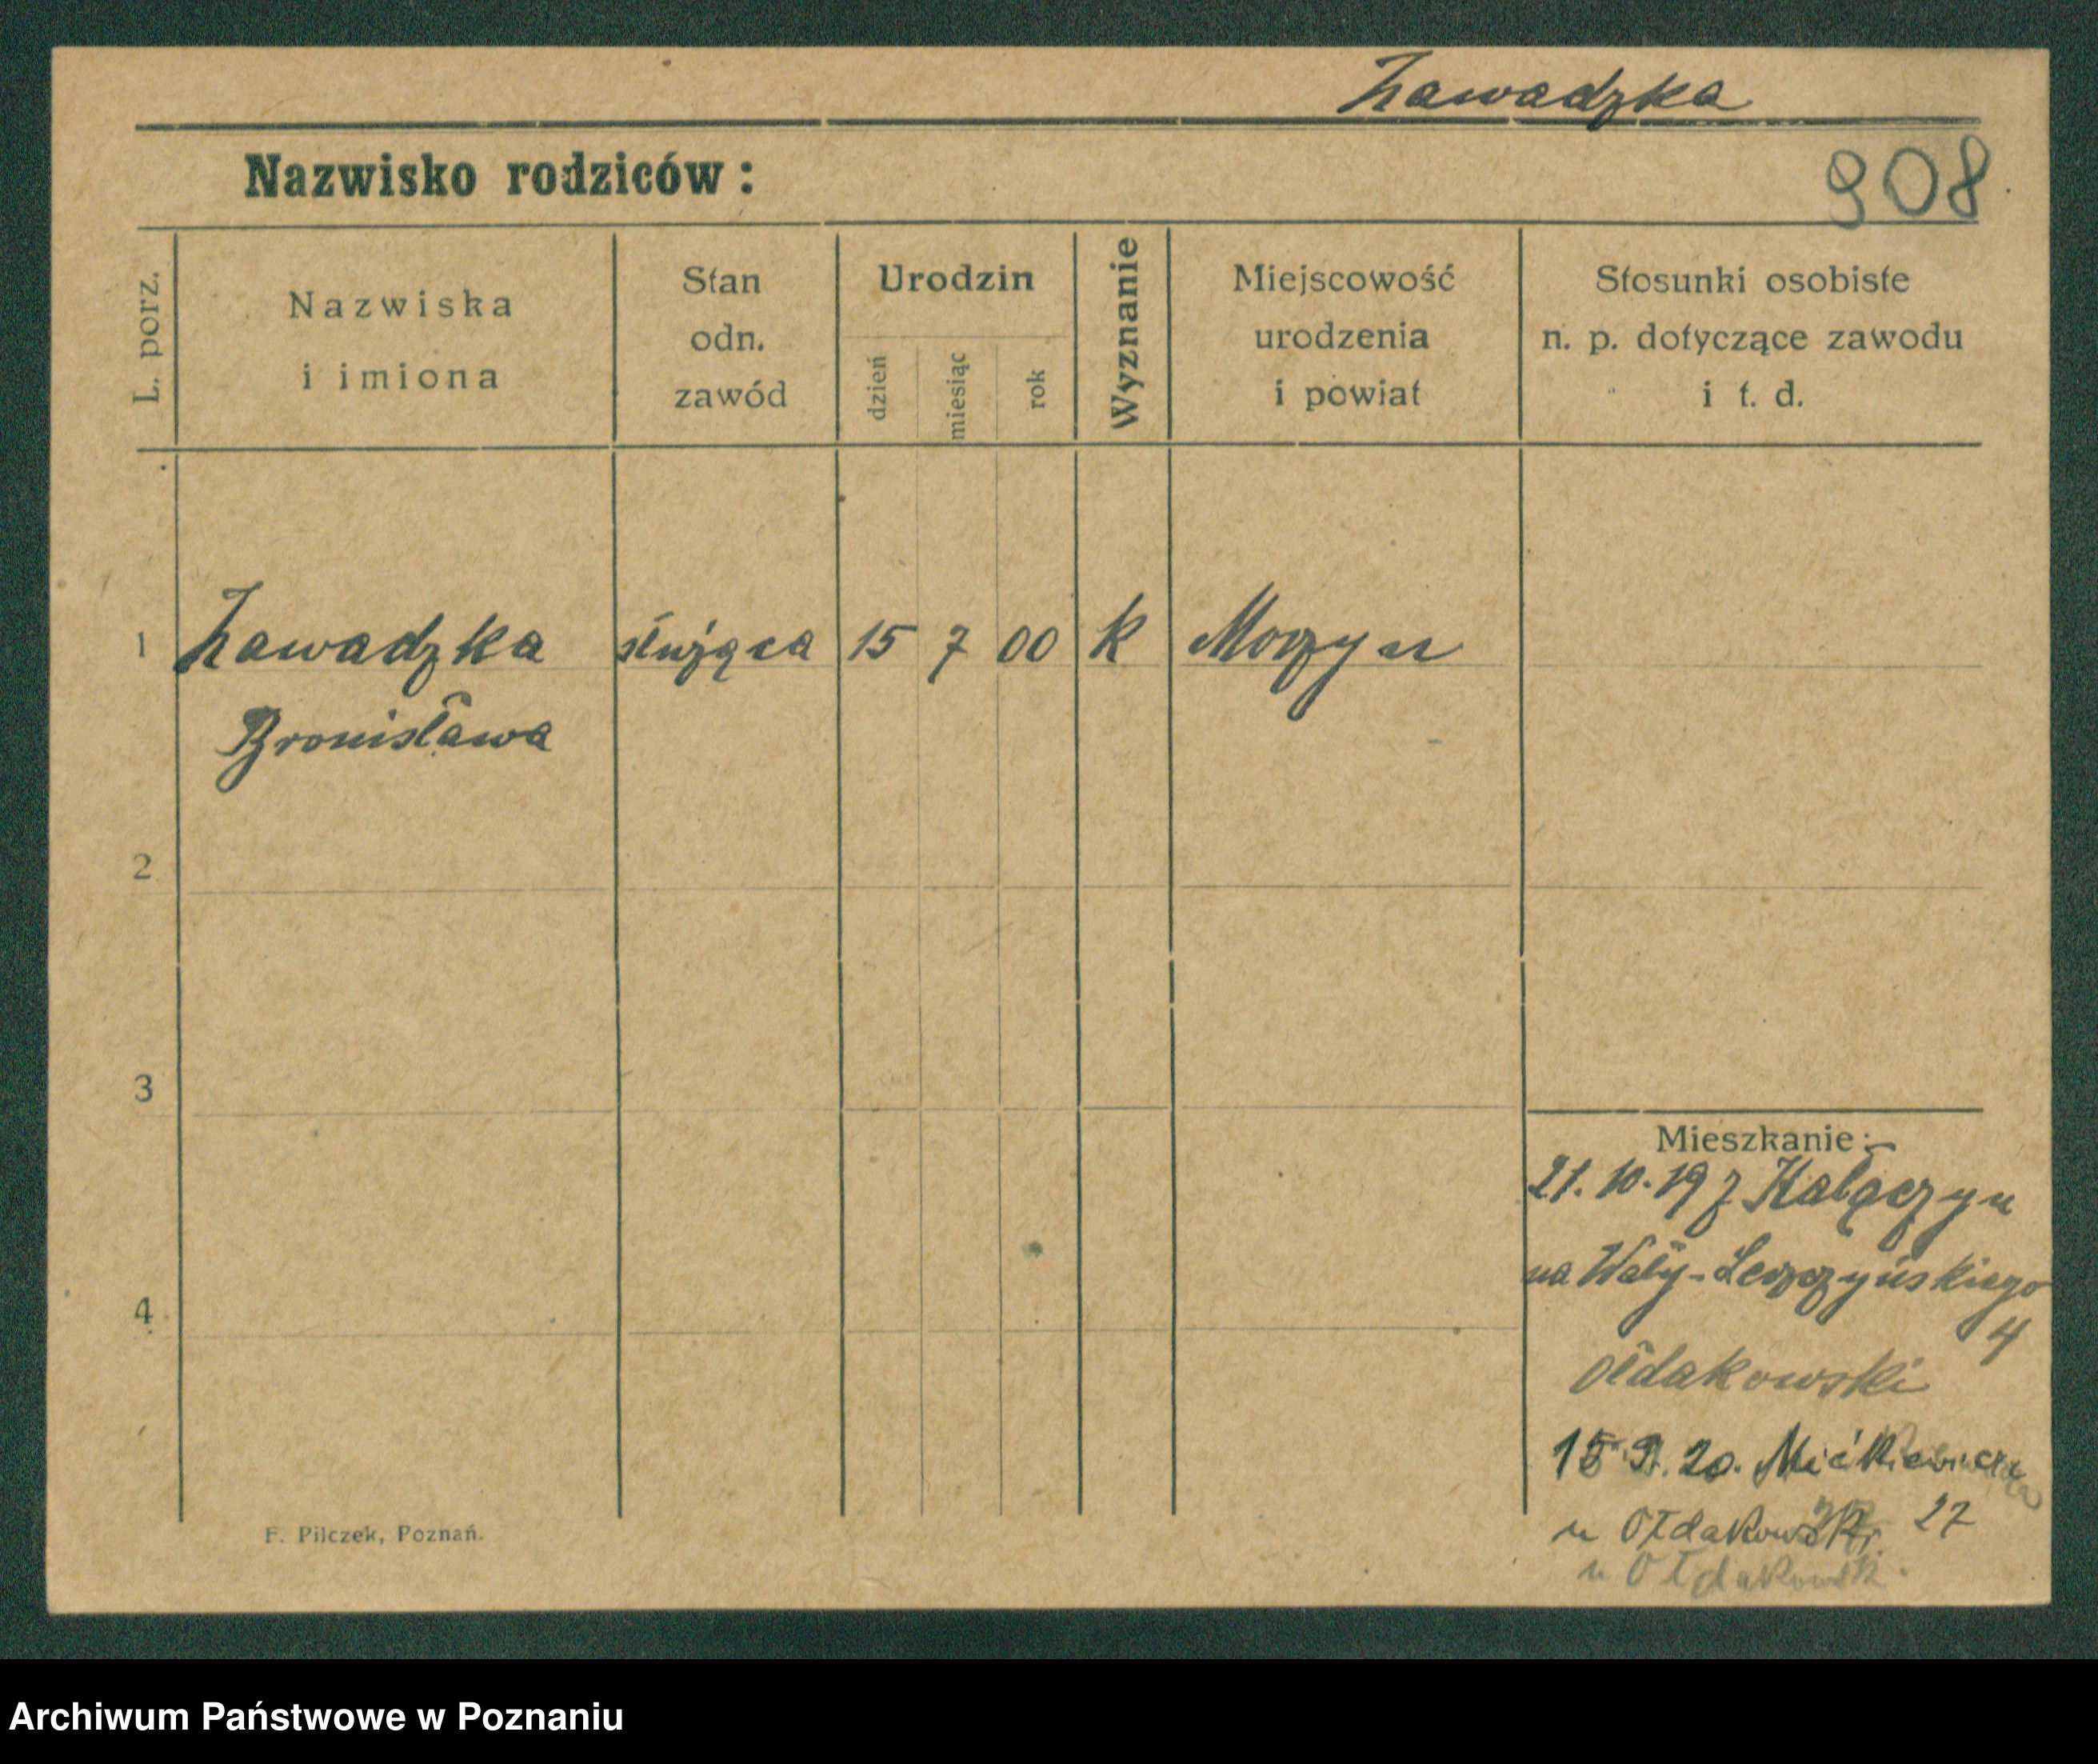 Zawadzka
Nazwisko rodziców:
908
L. porz.
Nazwiska
i imiona
Stan
odn.
zawód
Urodzin
dzień
miesiąc
rok
Wyznanie
Miejscowość
urodzenia
i powiat
Stosunki osobiste
n. p. dotyczące zawodu
i t. d.
1 Zawadzka służąca 15 7 00 k
Bronisława
2
3
4
Mieszkanie:
21.10.19 z
na Wały-Leszczyńskiego
4
Ołdakowski
15.9.20. Mickiewicza
u Ołdakowski. 27
u Ołdakowsk.
F. Pilczek, Poznań.
Archiwum Państwowe w Poznaniu